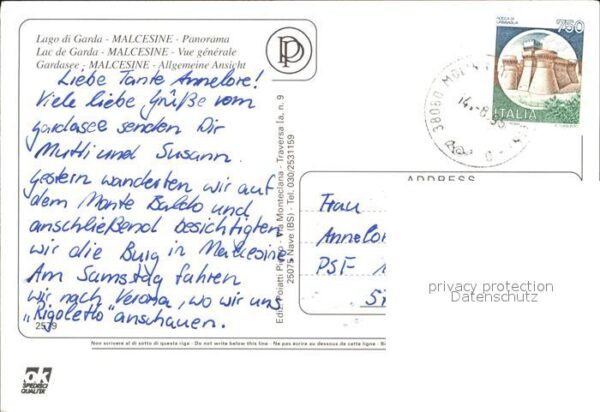 Lago di Garda - MALCESINE - Panorama
Lac de Garda - MALCESINE - Vue générale
Gardasee - MALCESINE - Allgemeine Ansicht
Liebe Tante Annelore!
Viele liebe Grüße vom
Gardasee senden Dir
Mutti und Susann.
Gestern wanderten wir auf
dem Monte Baldo und
anschließend besichtigten
wir die Burg in Malcesine.
Am Samstag fahren
wir nach Verona, wo wir uns
„Rigoletto" anschauen.
2579
Ediz. Poiatti - Via Monteclana - Traversa Ia, n. 9
25075 Nave (BS) - Tel. 030/2531159
750
ITALIA
38060
14.-8.95
ADDRESS
Frau
Annelor
PSF
privacy protection
Datenschutz
Non scrivere al di sotto di questa riga - Do not write below this line - Ne pas ecrire au dessous de cette ligne
ok
SPEDIBILI
QUALITÀ